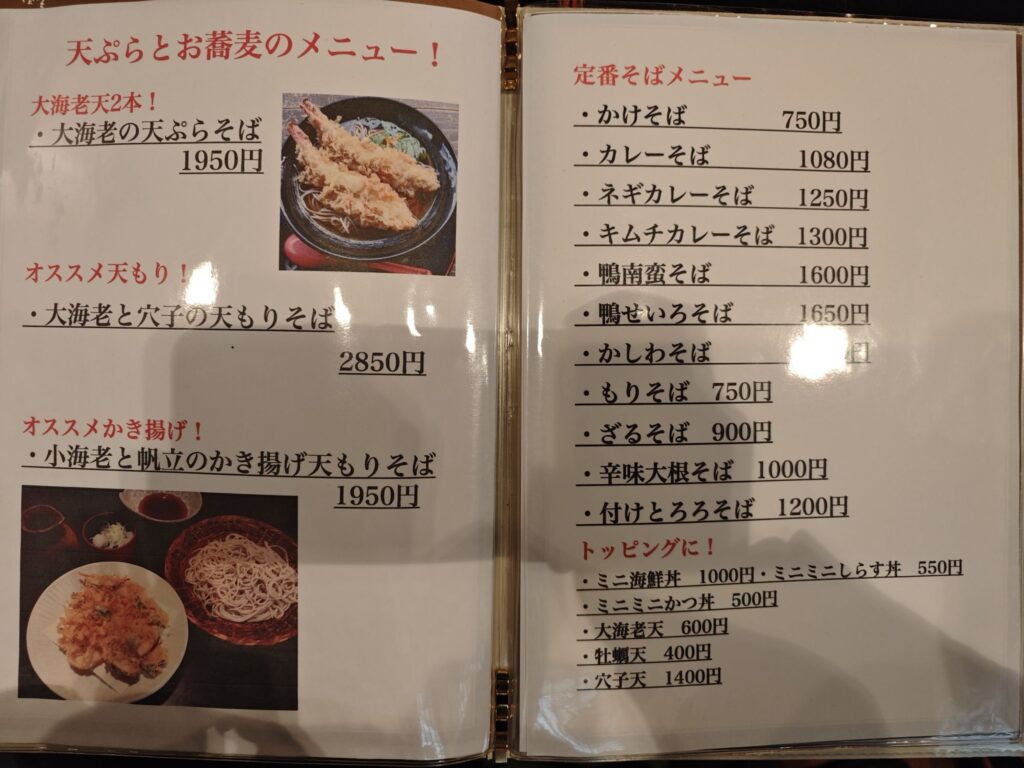 天ぷらとお蕎麦のメニュー！
大海老天2本！
・大海老の天ぷらそば
1950円
オススメ天もり！
・大海老と穴子の天もりそば
2850円
オススメかき揚げ！
・小海老と帆立のかき揚げ天もりそば
1950円
定番そばメニュー
・かけそば 750円
・カレーそば 1080円
・ネギカレーそば 1250円
・キムチカレーそば 1300円
・鴨南蛮そば 1600円
・鴨せいろそば 1650円
・かしわそば
・もりそば 750円
・ざるそば 900円
・辛味大根そば 1000円
・付けとろろそば 1200円
トッピングに！
・ミニ海鮮丼 1000円・ミニミニしらす丼 550円
・ミニミニかつ丼 500円
・大海老天 600円
・牡蠣天 400円
・穴子天 1400円